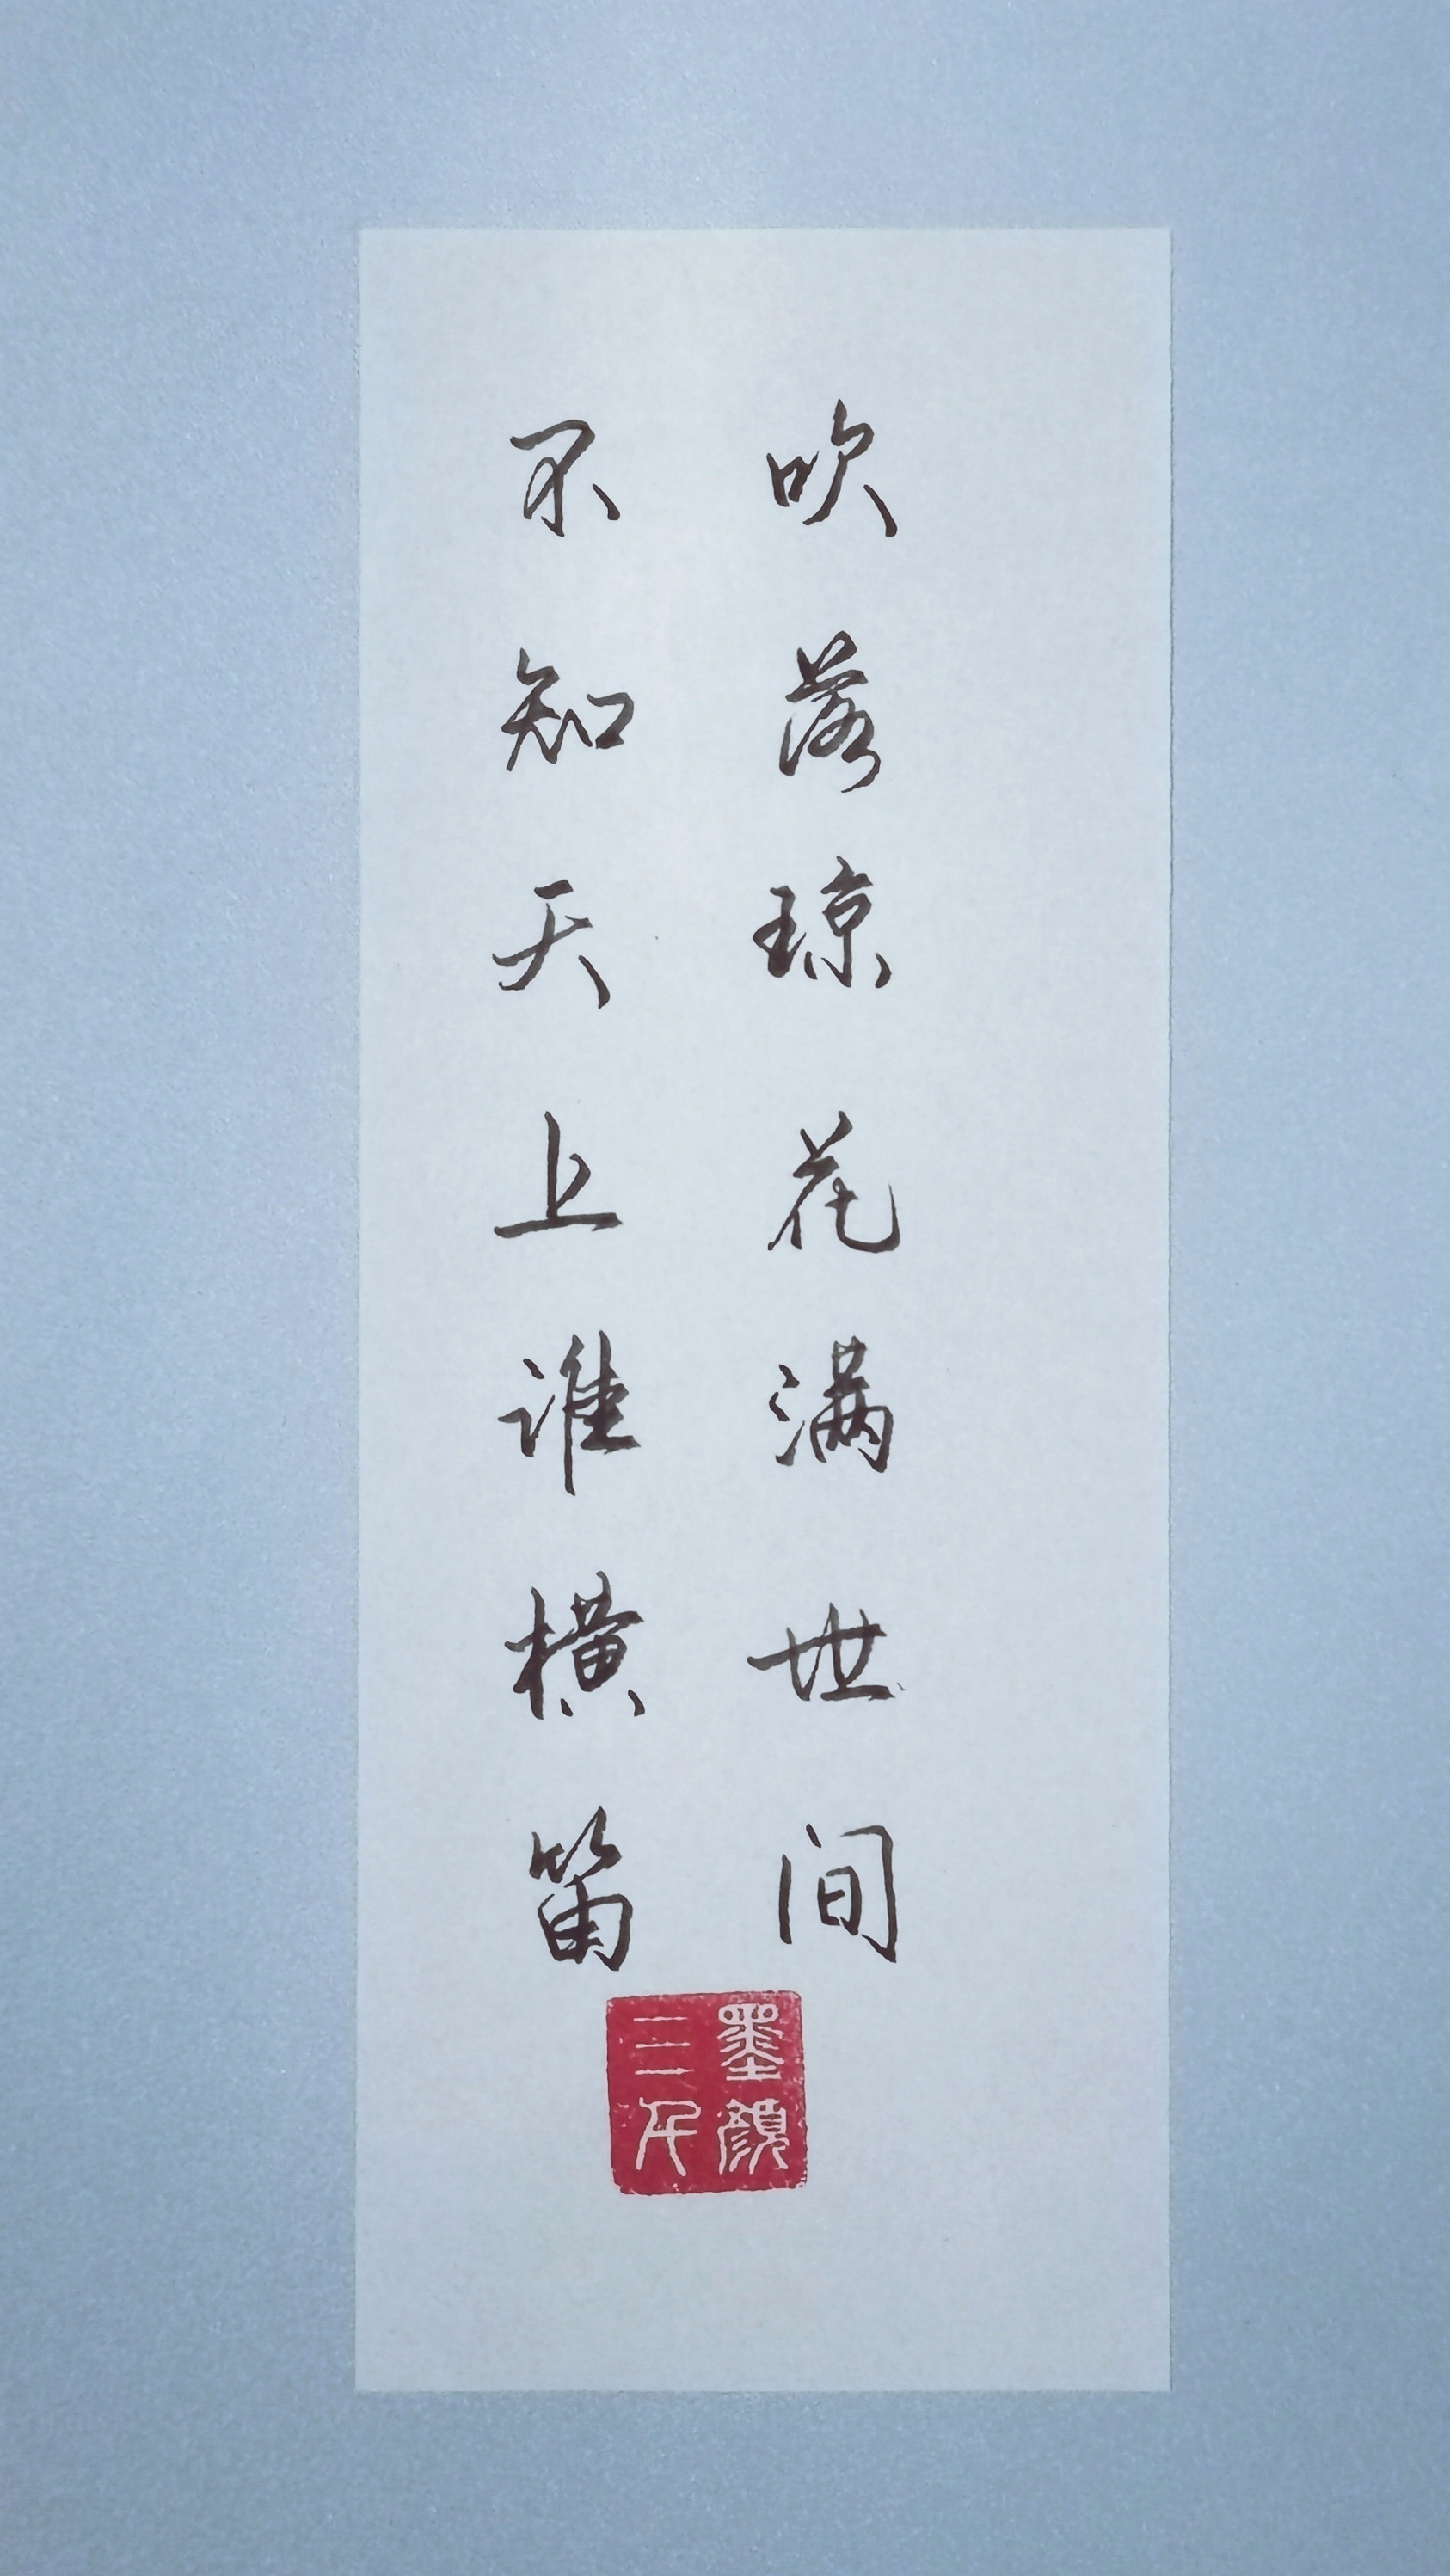 吹落琼花满世间
不知天上谁横笛
墨颜
三斤